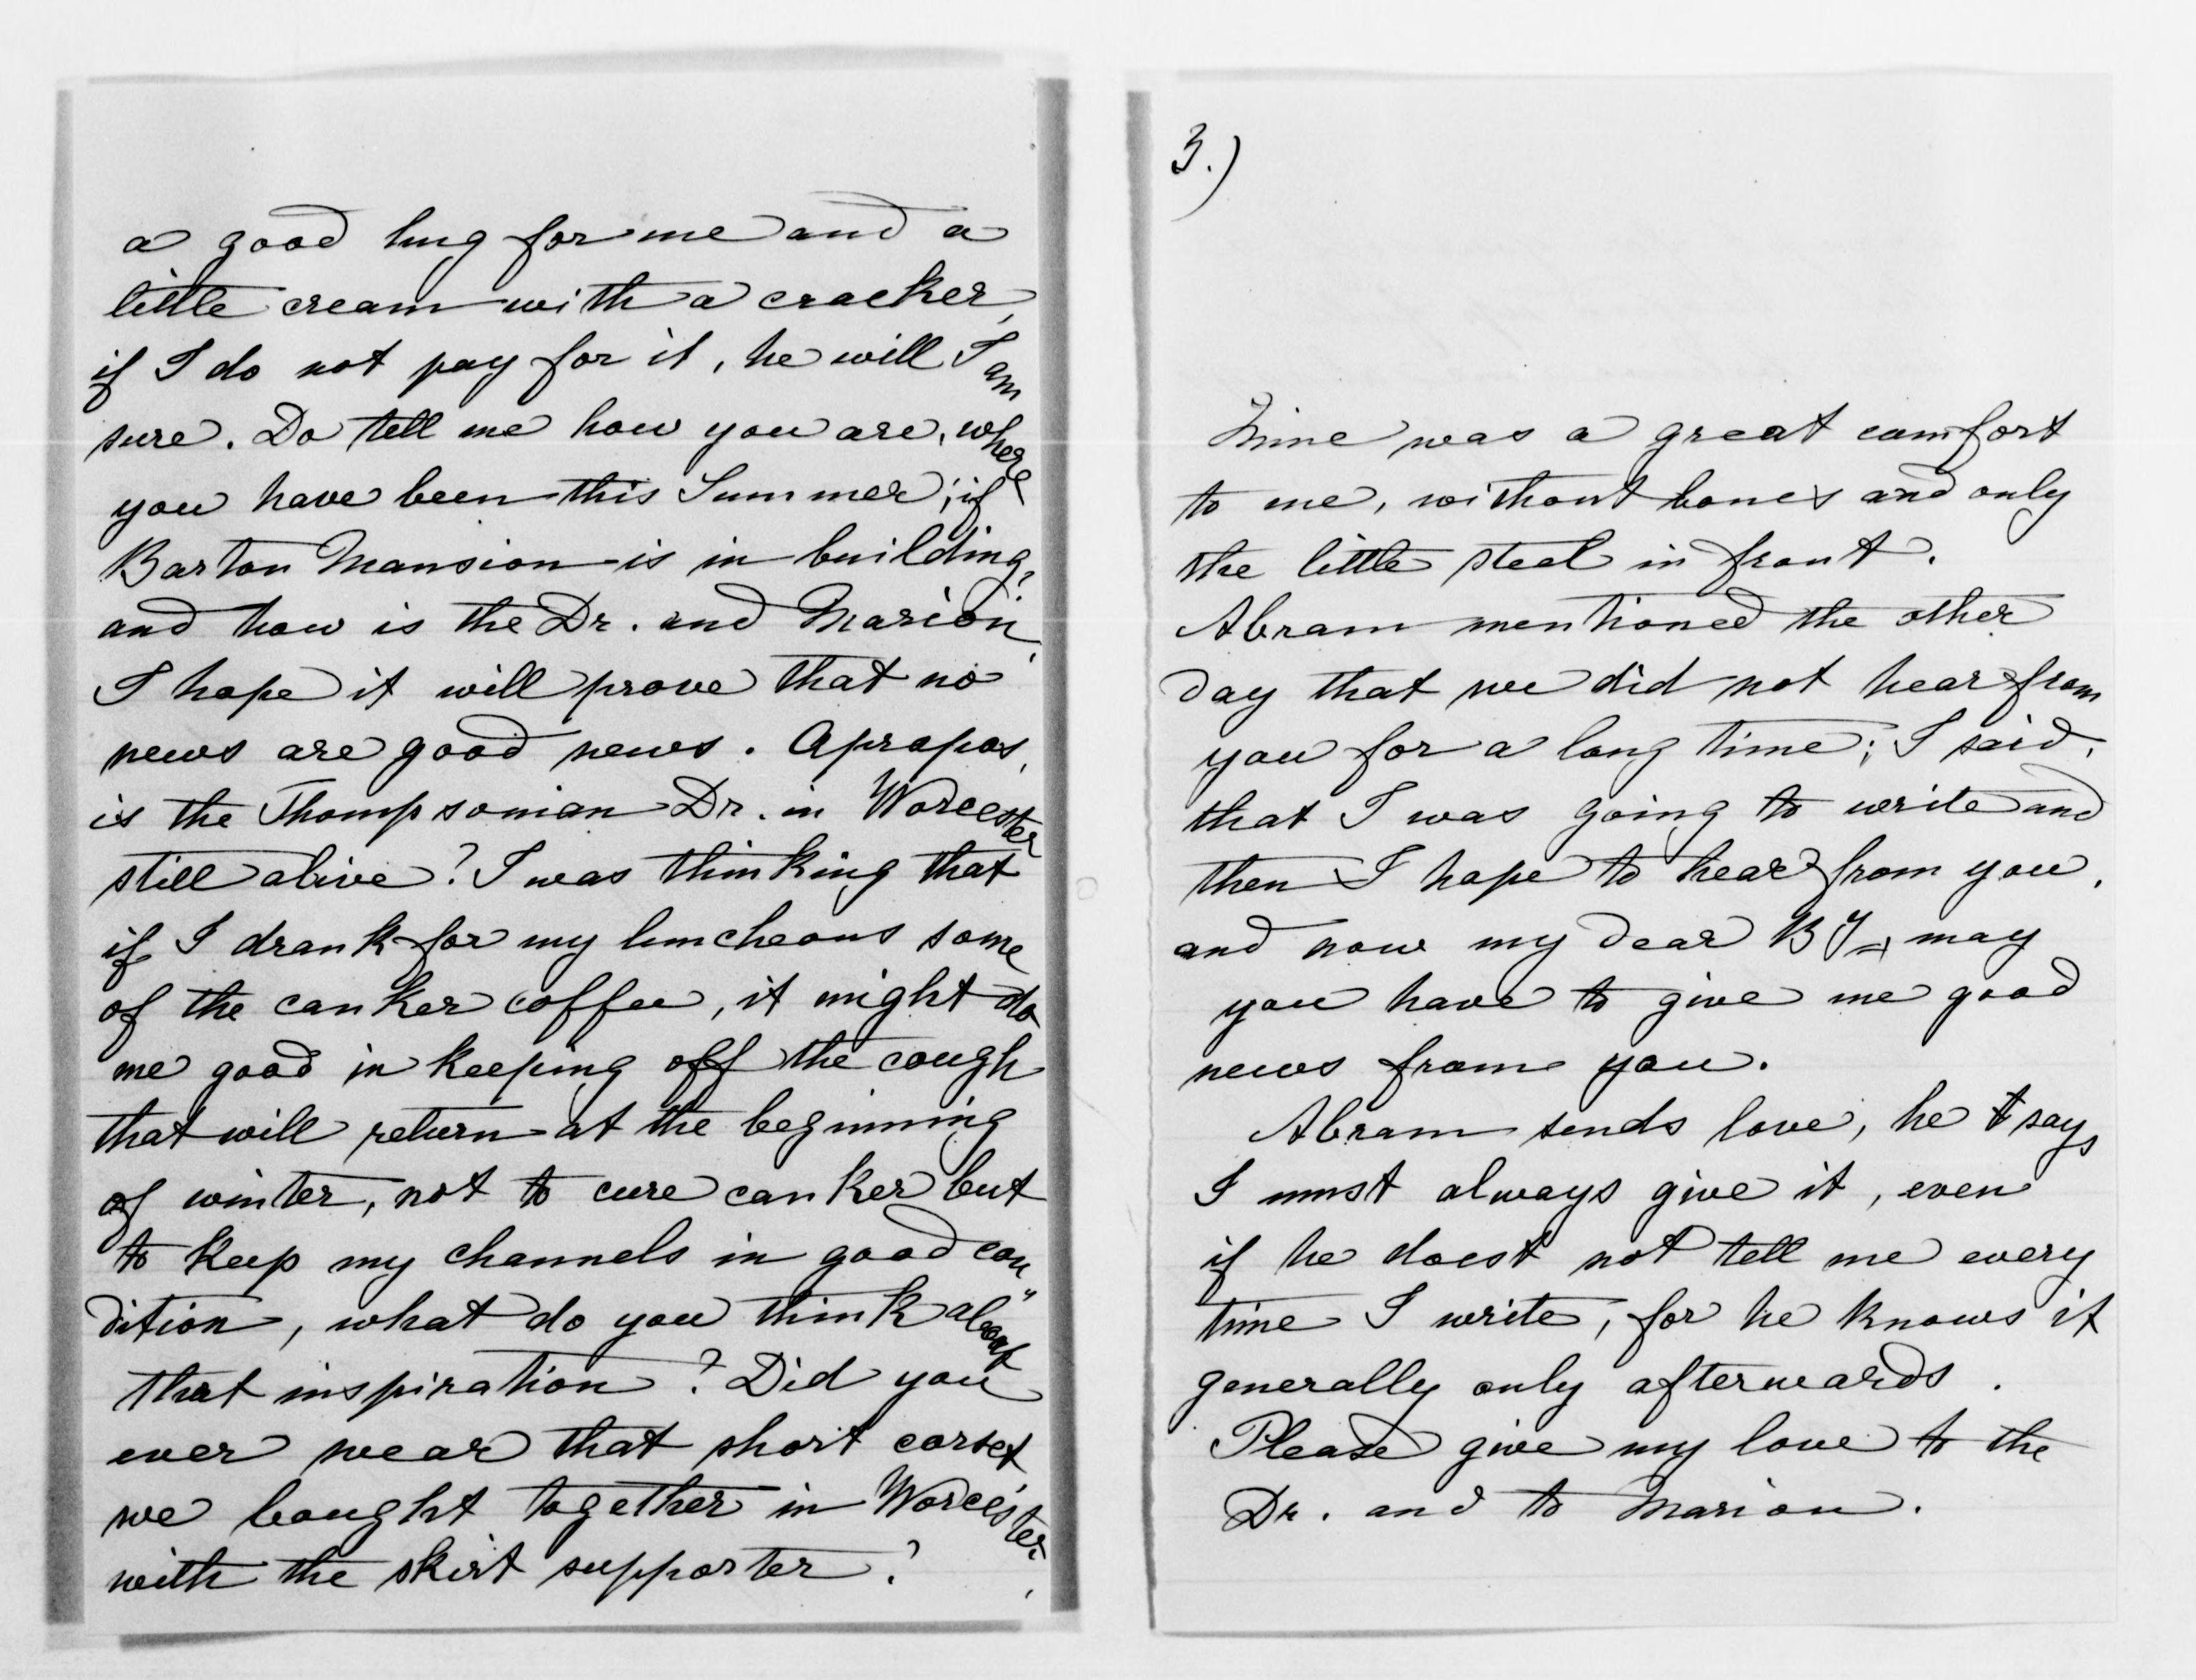 a good hug for me and a
little cream with a cracker,
if I do not pay for it, he will I am
sure. Do tell me how you are, where
you have been this Summer; if
Barton Mansion is in building,
and how is the Dr. and Marion,
I hope it will prove that no
news are good news. Apropos,
is the Thompsonian Dr. in Worcester
still alive? I was thinking that
if I drank for my luncheons some
of the canker coffee, it might do
me good in keeping off the cough
that will return at the beginning
of winter, not to cure canker but
to keep my channels in good con"
dition, what do you think about
that inspiration? Did you
ever wear that short corset
we bought together in Worcester,
with the skirt supporter?
3.)
Mine was a great comfort
to me, without bones and only
the little steel in front.
Abram mentioned the other
day that we did not hear from
you for a long time; I said,
that I was going to write and
then I hope to hear from you,
and now my dear may
you have to give me good
news from you.
Abram sends love, he says
I must always give it, even
if he doest not tell me every
time I write, for he knows it
generally only afterwards.
Please give my love to the
Dr. and to Marion.